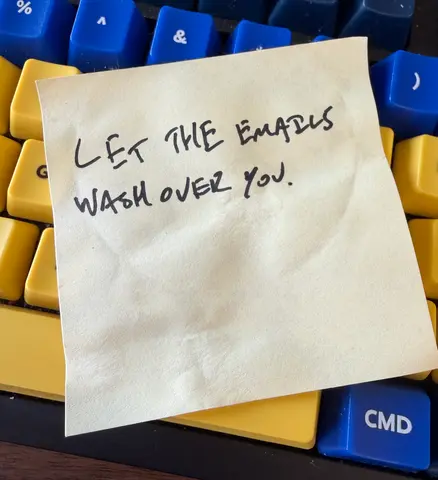 % ^ & )
LET THE EMAILS
WASH OVER YOU.
G
CMD